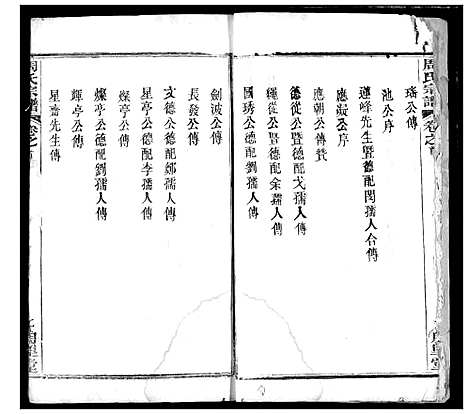 周氏宗譜
卷之首
瑤公傳
池公序
蓮峰先生暨德配閔孺人合傳
應巖公序
應朝公傳贊
德從公暨德配戈孺人傳
繩從公暨德配余孺人傳
國琇公德配劉孺人傳
劍波公傳
長發公傳
文德公德配鄭孺人傳
星亭公德配李孺人傳
燦亭公傳
燦亭公德配劉孺人傳
輝亭公傳
星齋先生傳
周氏宗譜
卷之首